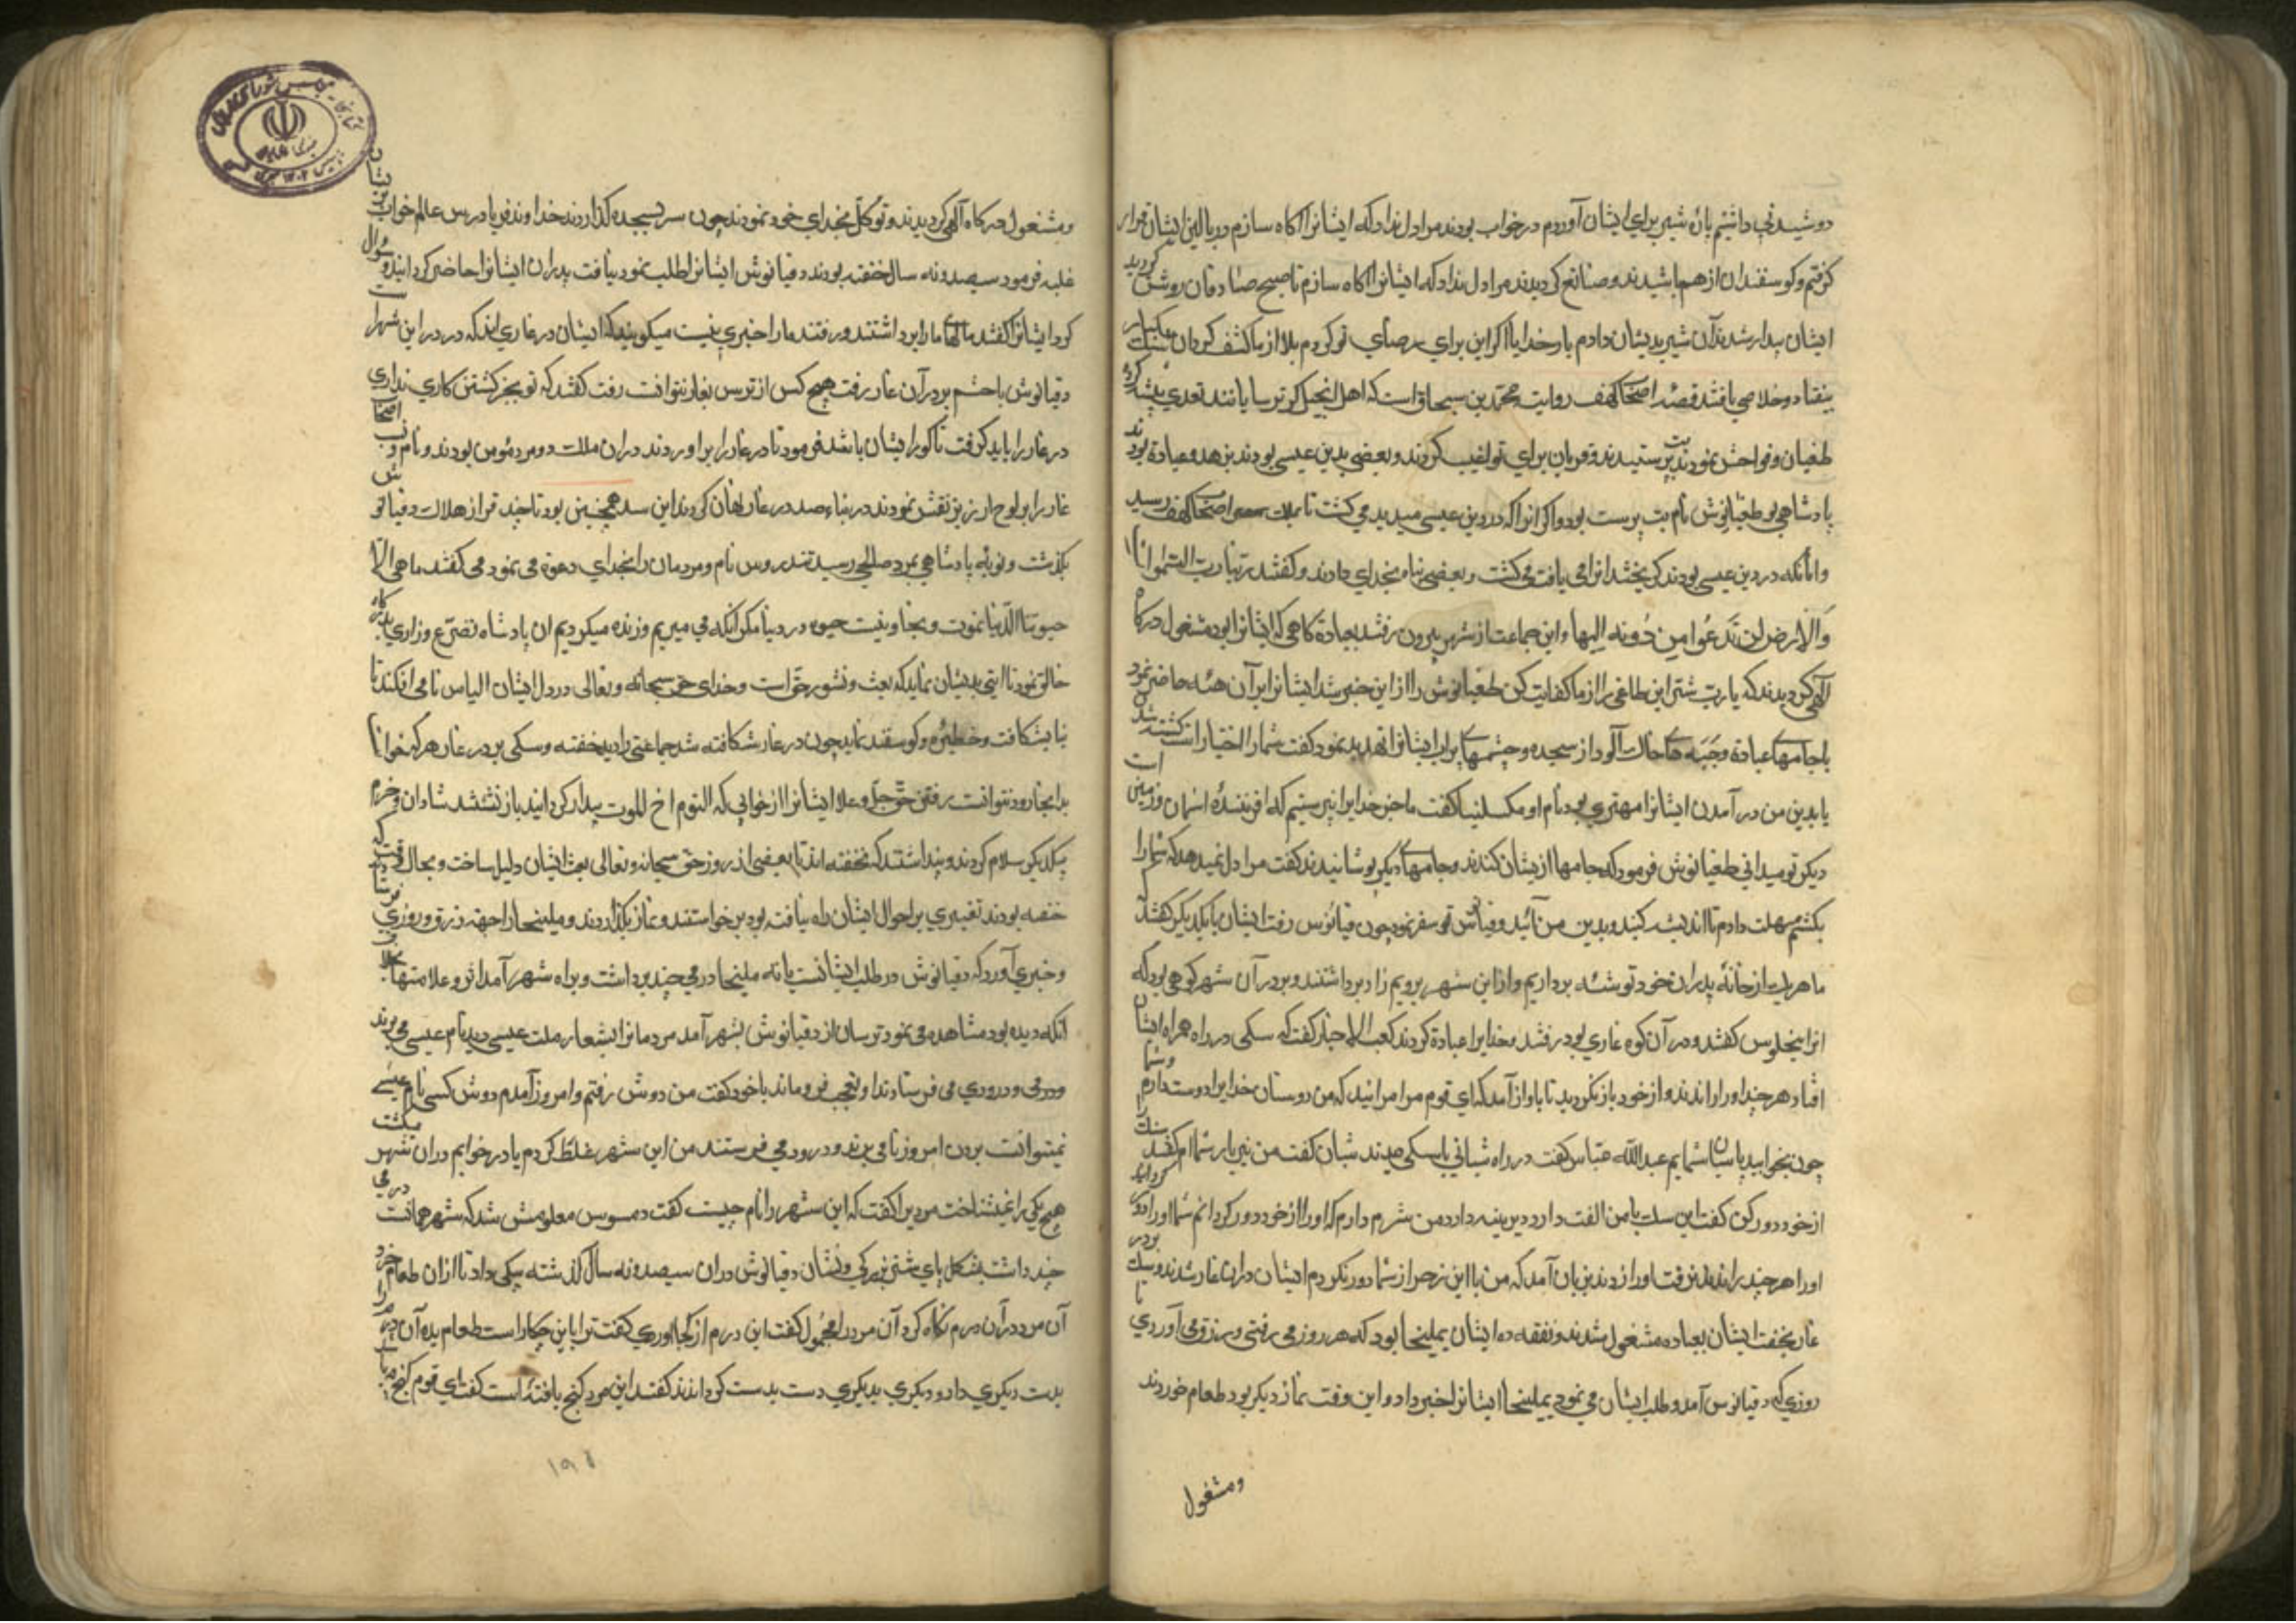 دوشیدنی داشتم بان شیر برای ایشان آوردم در خواب بودند مرا دل نداد که ایشانرا اکاه سازم در بالین ایشان قرار
کرفتم و کوسفندان از هم پاشیدند و ضایع کردیدند مرا دل نداد که ایشانرا اکاه سازم تا صبح صادقان روشن کردید
ایشان بیدار شدند آن شیر بدیشان دادم بار خدایا اکر این برای رضای تو کردم بلا از ما کشف کردان بیکبار سنک
بیفتاد و خلاصی یافتند قصه اصحاب کهف روایت محمد بن سحاق است که اهل انجیل که ترسایانند تعدی پیشه کرده
طغیان و فواحش نمودند بت پرستیدند و قربان برای طواغیت کردند و بعضی بدین عیسی بودند بزهد و عبادة بودند
پادشاهی بو طغیانوش نام بت پرست بود و اکر انرا که در دین عیسی میدید می کشت تا بملت اصحاب کهف رسید
و انانکه در دین عیسی بودند کریختند انرا می یافت می کشت و بعضی پناه بخدای دادند و کفتند ربنا رب السموات
والارض لن ندعوا من دونه الها و این جماعت از شهر بیرون رفتند بعبادة کاهی که ایشانرا بود مشغول درکاه
آلهی کردیدند که یا رب شر این طاغی را از ما کفایت کن طغیانوش را از این خبر شد ایشانرا بر آن هئه حاضر نمود
با جامهای عبادة و جبه های خاک آلود از سجده و چشمهای پر آب ایشانرا تهدید نمود کفت شما را اختیار است کشته شدن
یا بدین من در آمدن ایشانرا مهتری بود نام او مکسلینا کفت ما جز خدایرا نپرستیم که افرینندهٔ اسمان و زمین است
دیکر تو میدانی طغیانوش فرمود که جامها از یشان کندند و جامهای دیکر پوشانیدند کفت مرا دل نمیدهد که شما را
بکشم مهلت دادم تا اندیشه کنید و بدین من آئید دقیانوس قصد سفر نمود چون دقیانوس رفت ایشان با یکدیکر کفتند
ما هر یک از خانهٔ پدران خود توشئه برداریم و از این شهر برویم زاد برداشتند و بر در آن شهر کوهی بود که
انرا ینجلوس کفتند و در آن کوه غاری بود رفتند و خدایرا عبادة کردند کعب الاحبار کفت که سکی در راه همراه ایشان
افتاد هر چند او را راندند و از خود باز نکردید تا باواز آمد که ای قوم مرا مرانید که من دوستان خدایرا دوست دارم و شما
چون بخوابید پاسبان شمایم عبدالله عباس کفت در راه شبانی با سکی دیدند شبان کفت من نیز یار شماام کفتند سک را
از خود دور کن کفت این سک با من الفت دارد دیرینه دارد من شرم دارم که او را از خود دور کردانم شما او را دور کردانید
او را هر چند براندند نرفت او را زدند بزبان آمد که من با این زجر از شما دور نکردم ایشان در ان غار شدند و سک بر در
غار بخفت ایشان بعباده مشغول شدند و نفقه ده ایشان یملیخا بود که هر روز می رفتی و رزق می آوردی تا
روزی که دقیانوس آمد و طلب ایشان می نمود یملیخا ایشانرا خبر داد و این وقت نماز دیکر بود طعام خوردند
و مشغول
و مشغول درکاه آلهی کردیدند و توکل بخدای خود نمودند چون سر بسجده کذاردند خداوند فریادرس عالم خواب بر ایشان
غلبه فرمود سیصد و نه سال خفته بودند دقیانوش ایشانرا طلب نمود نیافت پدران ایشانرا حاضر کردانید و سوال
کرد ایشانرا کفتند مالهای ما را برداشتند و رفتند ما را خبری نیست میکویند که ایشان در غاری اند که در در این شهر است
دقیانوش با حشم بر در آن غار رفت هیچ کس از ترس بغار نتوانست رفت کفتند که تو بجز کشتن کاری نداری
در غار را باید کرفت تا کور ایشان باشد فرمود تا در غار را بر اوردند در ان ملک دو مرد مؤمن بودند و نام و نسب اصحاب
غار را بر لوح ارزیز نقش نمودند در بناء سد در غار نهان کردند این سد همچنین بود تا چند قرن از هلاک دقیانوش
بکذشت و نوبه پادشاهی بمرد صالحی رسید تندروس نام و مردمان را بخدای دعوة می نمود می کفتند ما هی الا
حیوتنا الدنیا نموت و نحیا و نیست حیوه در دنیا مکر انکه می میریم و زنده میکردیم ان پادشاه تضرع و زاری بدرکاه
خالق نمود تا ایتی بدیشان نماید که بعث و نشور حق است و خدای حق سبحانه و تعالی در دل ایشان الیاس نامی افکند تا
بنا بشکافت و حظیره کوسفند نماید چون در غار شکافته شد جماعتی را دید خفته و سکی بر در غار هر که خواست
بدانجا رود نتوانست رفتن حق جل و علا ایشانرا از خوابی که النوم اخ الموت بیدار کردانید باز نشستند شادان و خرم
بیکدیکر سلام کردند و پنداشتند که نخفته اند یا بعضی از روز حق سبحانه و تعالی بعث ایشان دلیل ساخت و بحال وقت که
خفته بودند تغییری بر احوال ایشان راه نیافته بود برخواستند و نماز بکذاردند و ملیخا را جهة رزق و روزی فرستادند
و خبری آورد که دقیانوش در طلب ایشانست یا نه ملیخا درمی چند برداشت و براه شهر آمد اثر و علامتها
انکه دیده بود مشاهده می نمود ترسان از دقیانوش بشهر آمد مردمانرا بشعار ملت عیسی دید نام عیسی می بردند
و درود می فرستادند او بتعجب فرو ماند با خود کفت من دوش رفتم و امروز آمدم دوش کسی نام عیسی
نمیتوانست بردن امروز نام می برند و درود می فرستند من این شهر غلط کردم یا در خوابم در ان شهر میکشت
هیچ یکی را نمیشناخت مردیرا کفت که این شهر را نام چیست کفت دمسوس معلومش شد که شهر همانست درمی
چند داشت بشکل پای شتر بزرکی و نشان دقیانوش در ان سیصد و نه سال کذشته بیکی داد تا از ان طعام خرد
آن مرد در آن درم نکاه کرد آن مرد را مجهول کفت این درم از کجا اوردی کفت ترا باین چکار است طعام بده آن مرد درم را
بدست دیکری داد و دیکری بدیکری دست بدست کردانیدند کفتند این مرد کنج یافته است کفت ای قوم کنج
۱۹۸